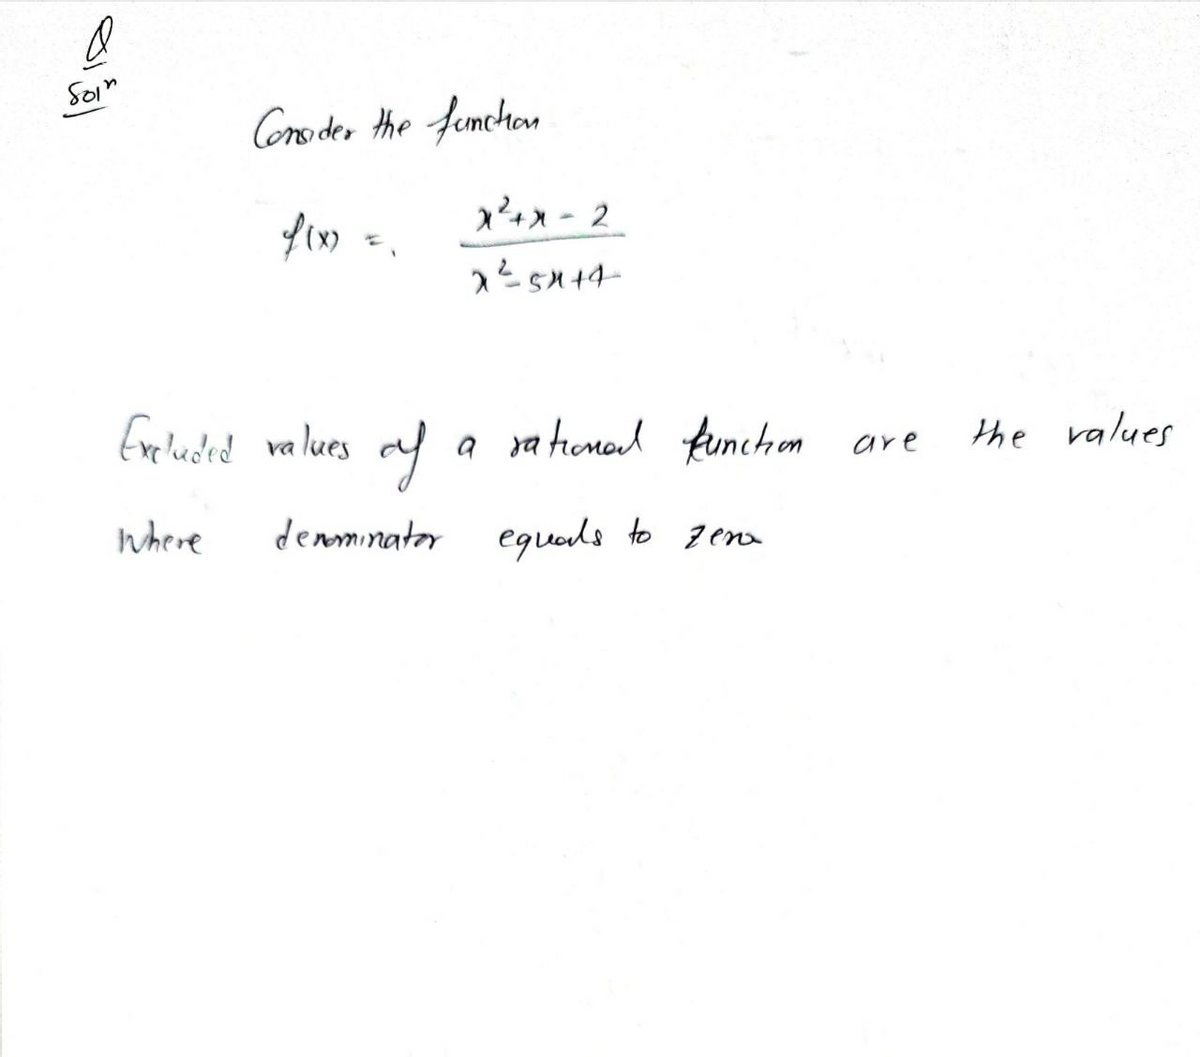 Q
Solⁿ
Consider the function
f(x) = x²+x-2 / x²-5x+4
Excluded values of a rational function are the values
where denominator equals to zero